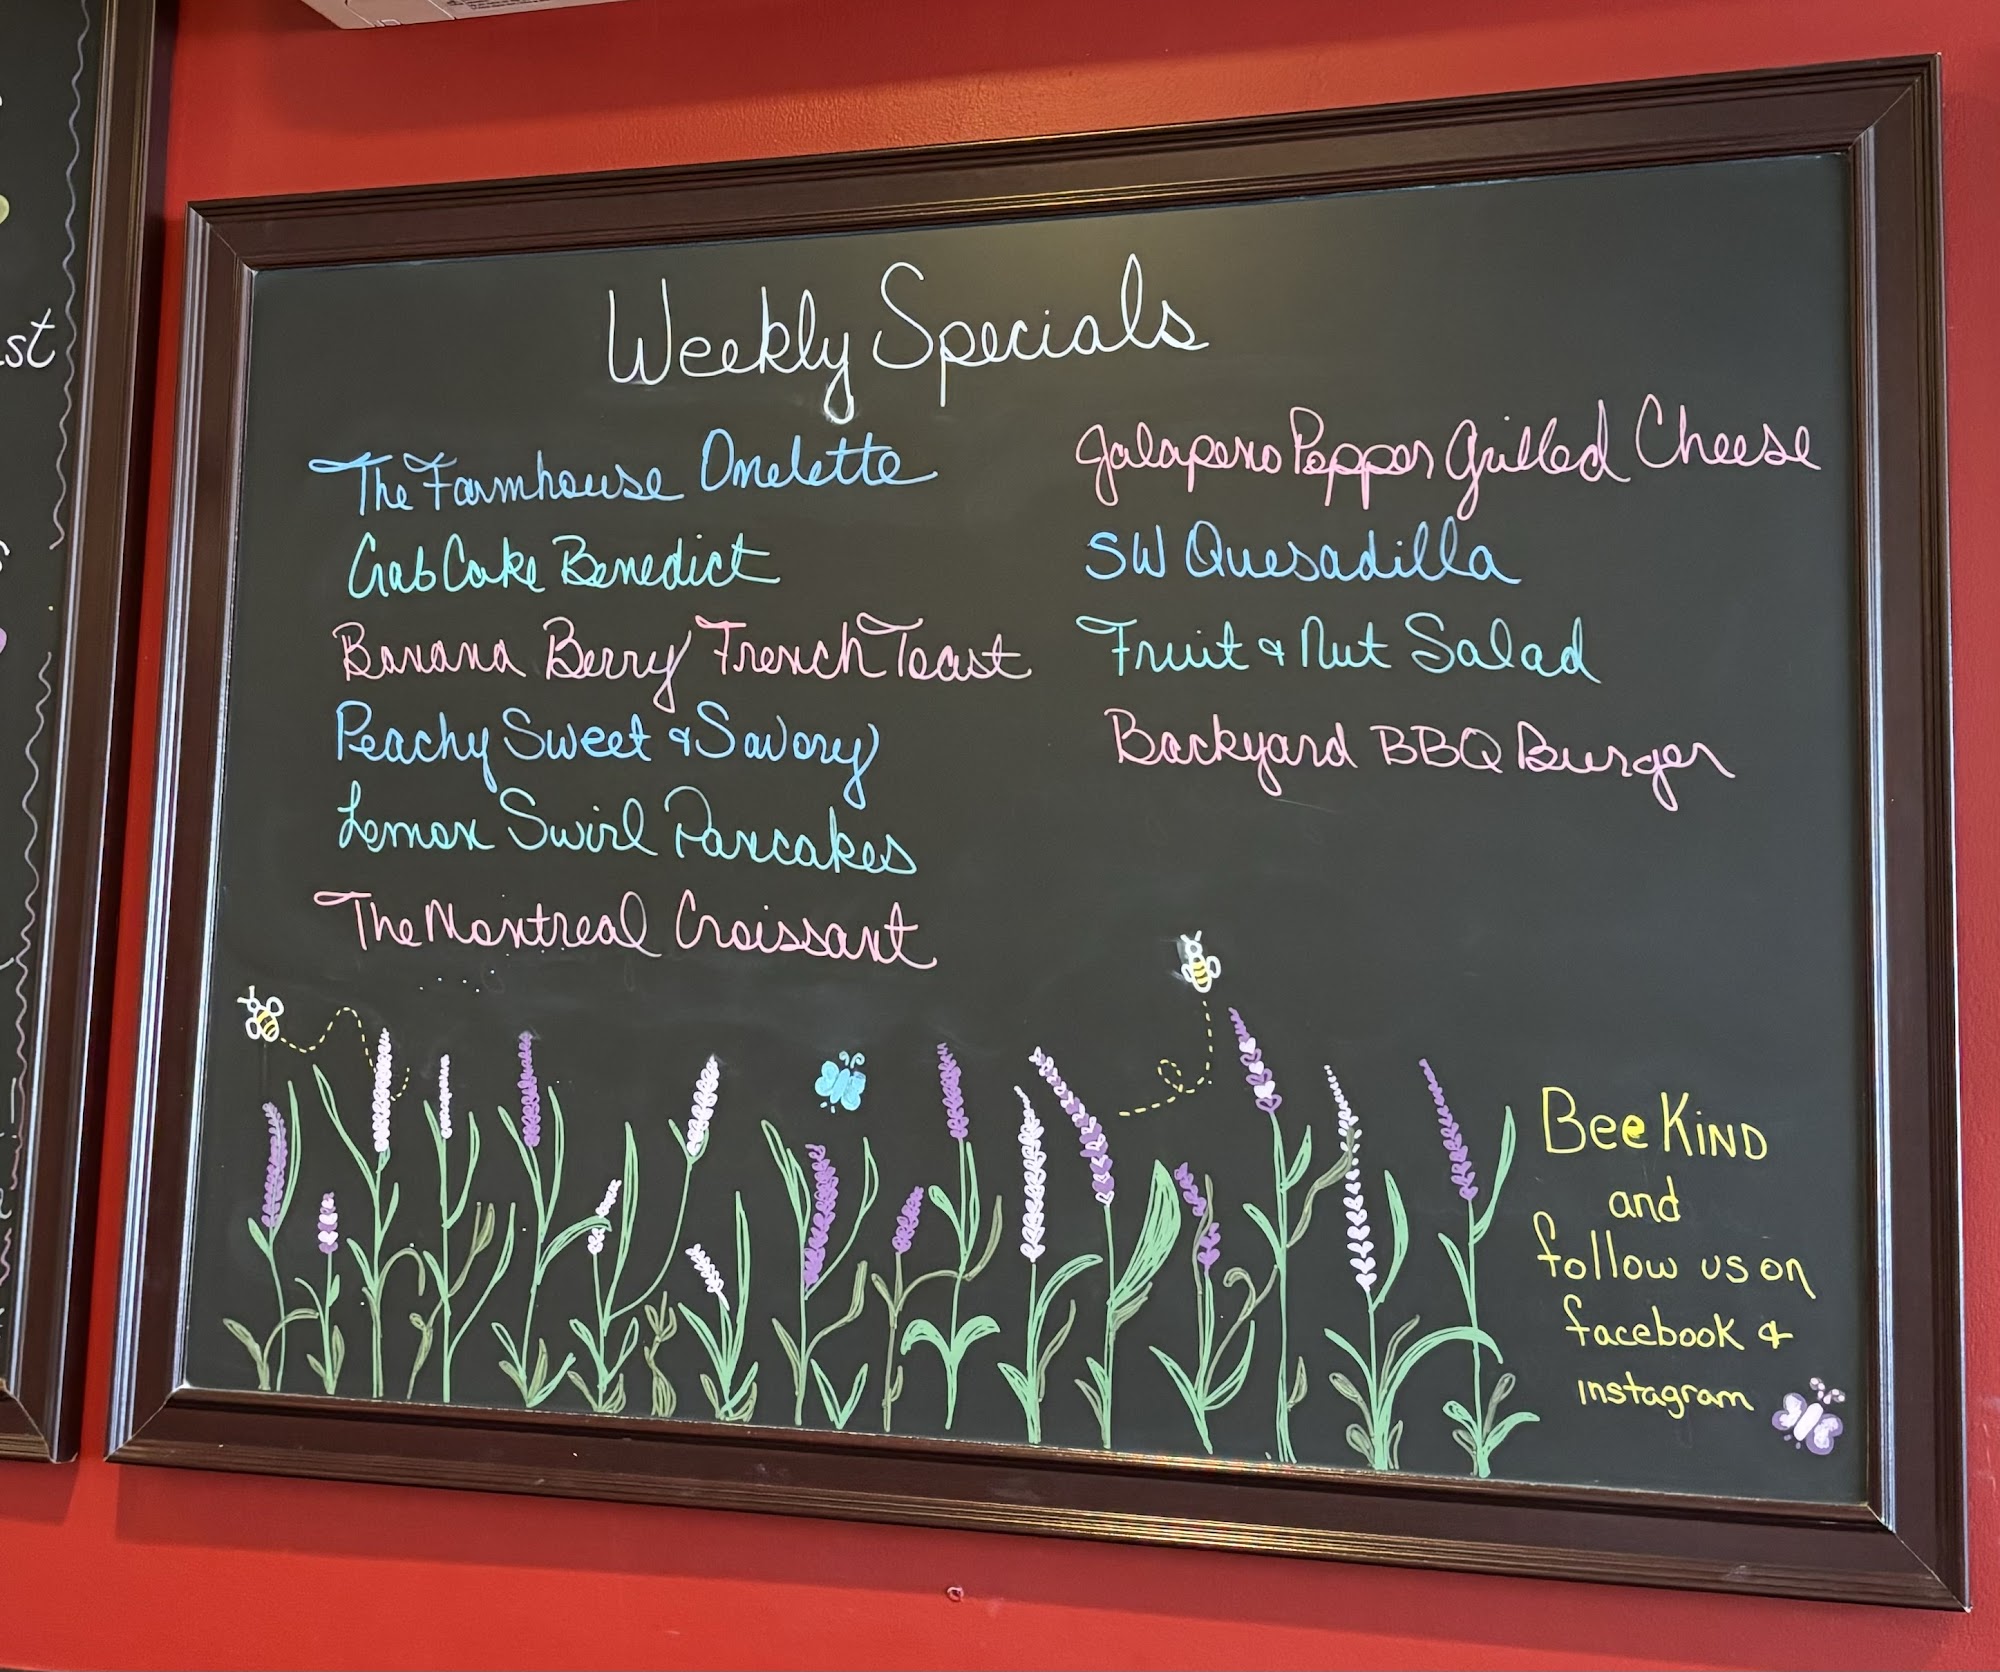 Weekly Specials
The Farmhouse Omelette
Crab Cake Benedict
Banana Berry French Toast
Peachy Sweet & Savory
Lemon Swirl Pancakes
The Montreal Croissant
Jalapeno Pepper Grilled Cheese
SW Quesadilla
Fruit & Nut Salad
Backyard BBQ Burger
Bee Kind
and
follow us on
facebook &
instagram